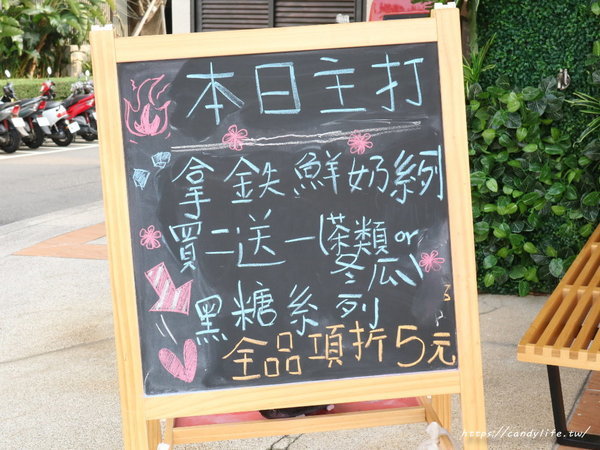 本日主打
拿鉄鮮奶系列
買二送一(茶類or
冬瓜)
黑糖系列
全品項折5元
https://candylife.tw/